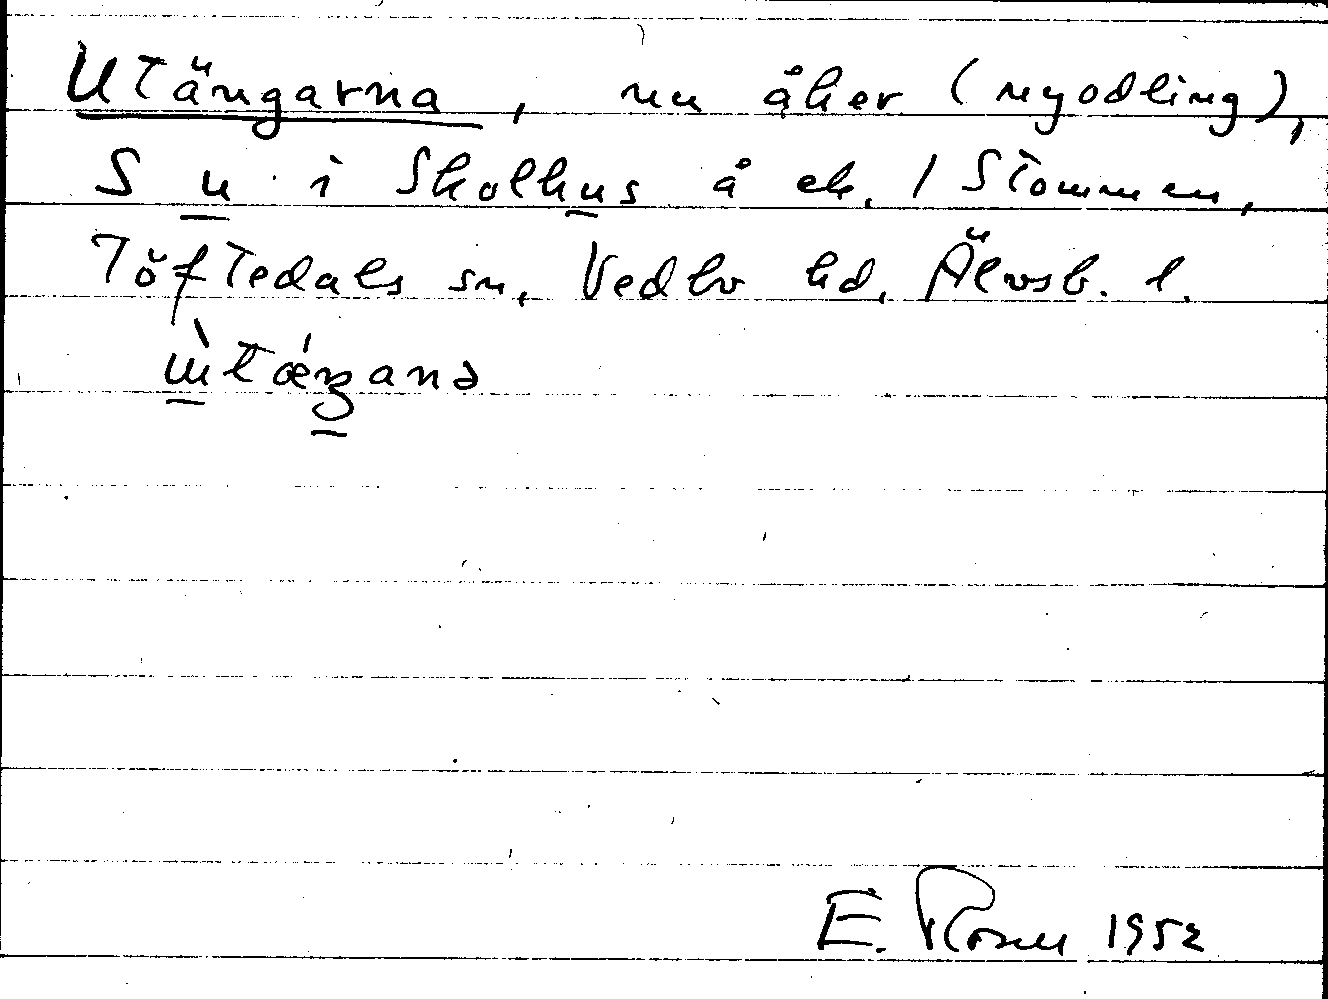 Utängarna, nu åker (nyodling),
S u i Skolhus å ek. 1 Stommen,
Töftedals sn, Vedbo hd, Älvsb. l.
E. Rosell 1952